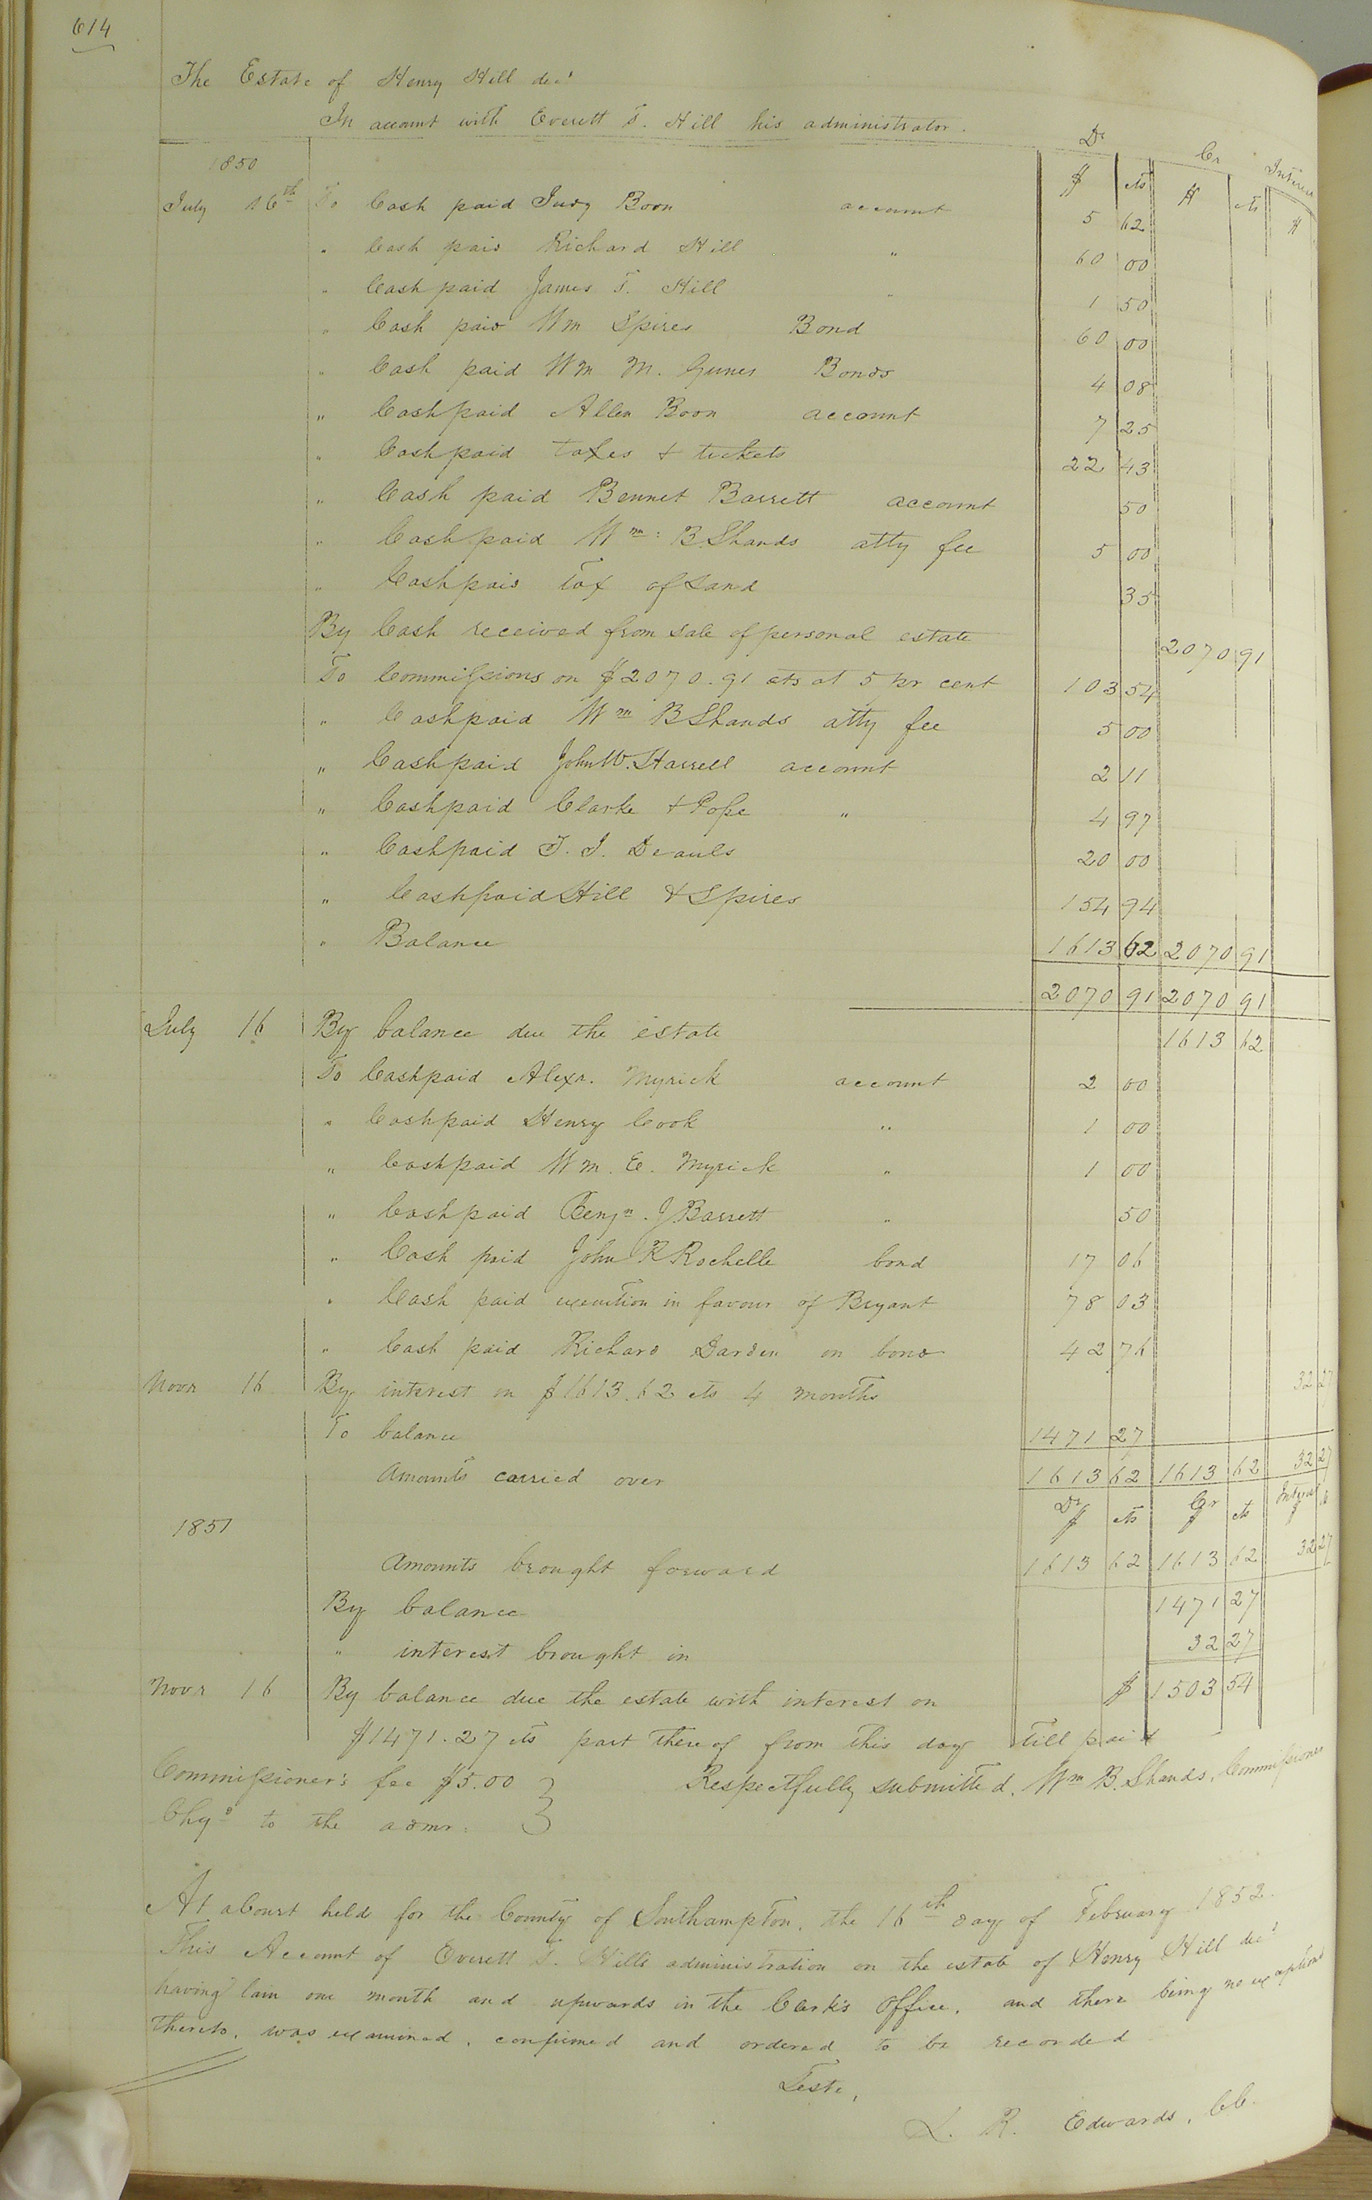 614
The Estate of Henry Hill decd
In account with Everett T. Hill his administrator.
Dr Cr Interest
1850 $ cts $ cts $
July 16th To Cash paid Judy Boon account 5 62
" Cash paid Richard Hill " 60 00
" Cash paid James T. Hill " 1 50
" Cash paid Wm Spires Bond 60 00
" Cash paid Wm M. Bonds 4 08
" Cash paid Allen Boon account 7 25
" Cash paid taxes & tickets 22 43
" Cash paid Bennet Barrett account 50
" Cash paid Wm: B Shands atty fee 5 00
" Cash paid Tax of Land 35
By Cash received from sale of personal estate 2070 91
To Commissions on $2070.91 cts at 5 pr cent 103 54
" Cash paid Wm B Shands atty fee 5 00
" Cash paid John W. Harrell account 2 11
" Cash paid Clarke & Pope " 4 97
" Cash paid 20 00
" Cash paid Hill & Spires 154 94
" Balance 1613 62 2070 91
2070 91 2070 91
July 16 By balance due the estate 1613 62
To Cash paid Alexr. Myrick account 2 00
" Cash paid Henry Cook " 1 00
" Cash paid Wm. E. Myrick " 1 00
" Cash paid Benjn. J Barrett " 50
" Cash paid John R Rochelle bond 17 06
" Cash paid execution in favour of Bryant 78 03
" Cash paid Richard Darden on bond 42 76
Novr 16 By interest on $1613.62 cts 4 months 32 27
To balance 1471 27
Amounts carried over 1613 62 1613 62 32 27
Dr $ cts Cr $ cts Interest $
1851
Amounts brought forward 1613 62 1613 62 32 27
By balance 1471 27
" interest brought in 32 27
Novr 16 By balance due the estate with interest on $ 1503 54
$1471.27 cts part thereof from this day till paid
Commissioner's fee $5.00 } Respectfully submitted. Wm B. Shands, Commissioner
Chgd to the admr.
At a Court held for the County of Southampton, the 16th day of February 1852.
This Account of Everett T. Hill's administration on the estate of Henry Hill decd
having lain one month and upwards in the Clerk's Office, and there being no exceptions
thereto, was examined, confirmed and ordered to be recorded
Teste,
L. R. Edwards, CC.